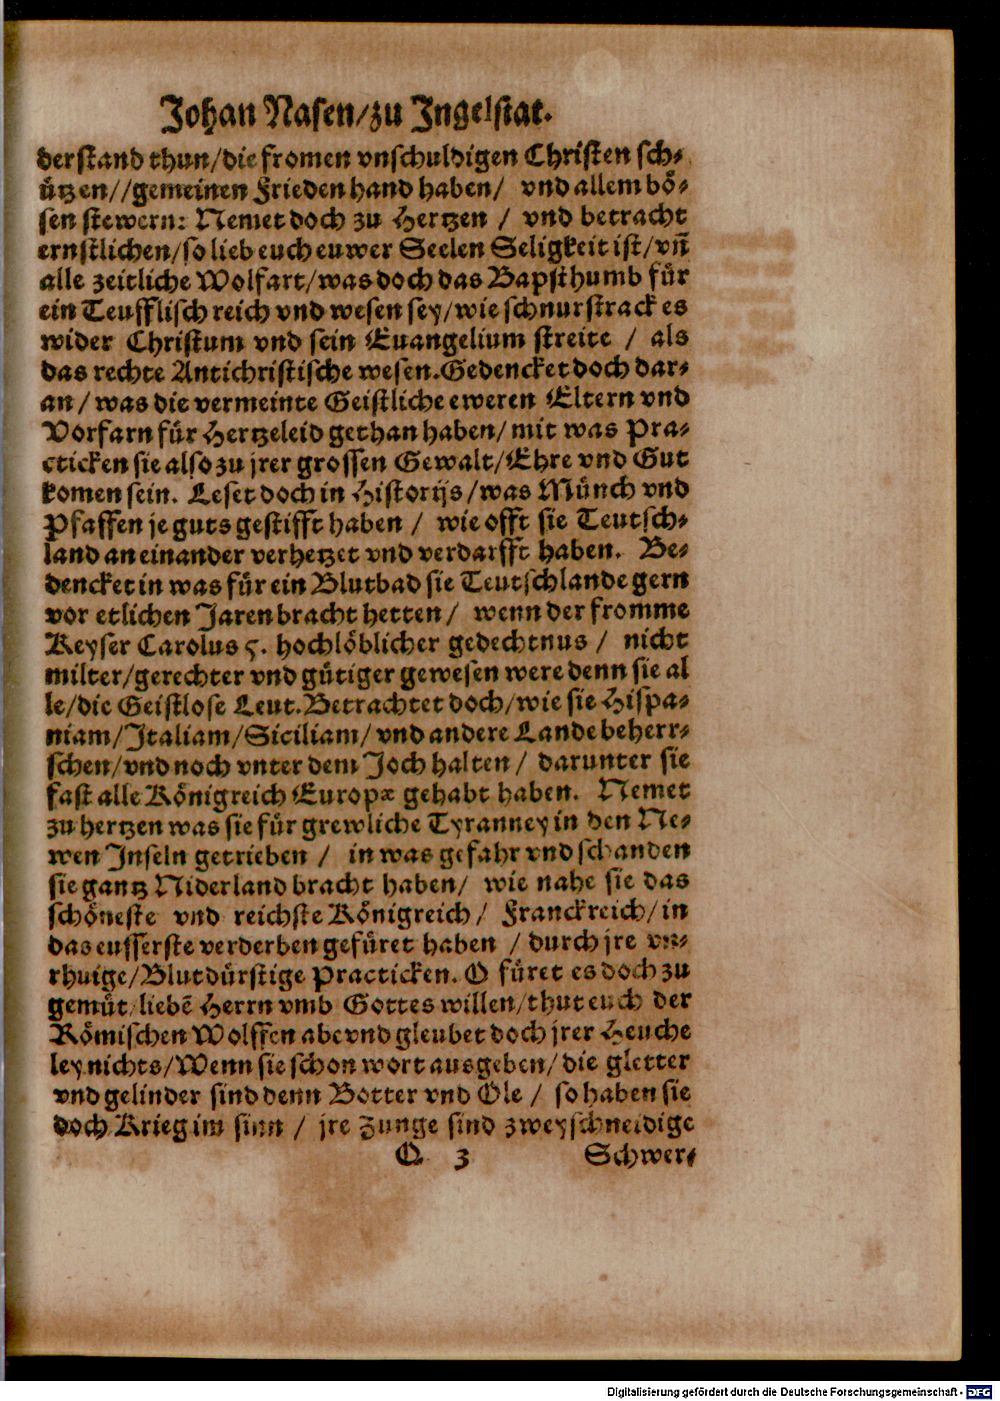 Johan Nasen/zu Jngelstat.
derstand thun/die fromen vnschuldigen Christen sch⸗
ützen//gemeinen Frieden hand haben/ vnd allem bö⸗
sen stewern: Nemet doch zu Hertzen / vnd betracht
ernstlichen/so lieb euch euwer Seelen Seligkeit ist/vñ
alle zeitliche Wolfart/was doch das Bapsthumb für
ein Teufflisch reich vnd wesen sey/wie schnurstrack es
wider Christum vnd sein Euangelium streite / als
das rechte Antichristische wesen.Gedencket doch dar⸗
an/was die vermeinte Geistliche eweren Eltern vnd
Vorfarn für Hertzeleid gethan haben/mit was Pra⸗
cticken sie also zu jrer grossen Gewalt/Ehre vnd Gut
komen sein. Leset doch in Historijs/was Münch vnd
Pfaffen je guts gestifft haben / wie offt sie Teutsch⸗
land an einander verhetzet vnd verdarfft haben. Be⸗
dencket in was für ein Blutbad sie Teutschlande gern
vor etlichen Jaren bracht hetten/ wenn der fromme
Keyser Carolus 5. hochlöblicher gedechtnus / nicht
milter/gerechter vnd gütiger gewesen were denn sie al
le/die Geistlose Leut.Betrachtet doch/wie sie Hispa⸗
niam/Jtaliam/Siciliam/vnd andere Lande beherr⸗
schen/vnd noch vnter dem Joch halten/ darunter sie
fast alle Königreich Europæ gehabt haben. Nemet
zu hertzen was sie für grewliche Tyranney in den Ne⸗
wen Jnseln getrieben / in was gefahr vnd schanden
sie gantz Niderland bracht haben/ wie nahe sie das
schöneste vnd reichste Königreich/ Franckreich/in
das eusserste verderben gefüret haben /durch jre vn⸗
rhuige/Blutdürstige Practicken. O füret es doch zu
gemüt/liebẽ Herrn vmb Gottes willen/thut euch der
Römischen Wolffen ab vnd gleubet doch jrer Heuche
ley nichts/Wenn sie schon wort ausgeben/die gletter
vnd gelinder sind denn Botter vnd Ole / so haben sie
doch Krieg im sinn / jre Zunge sind zweyschneidige
O 3 Schwer⸗
Digitalisierung gefördert durch die Deutsche Forschungsgemeinschaft - DFG